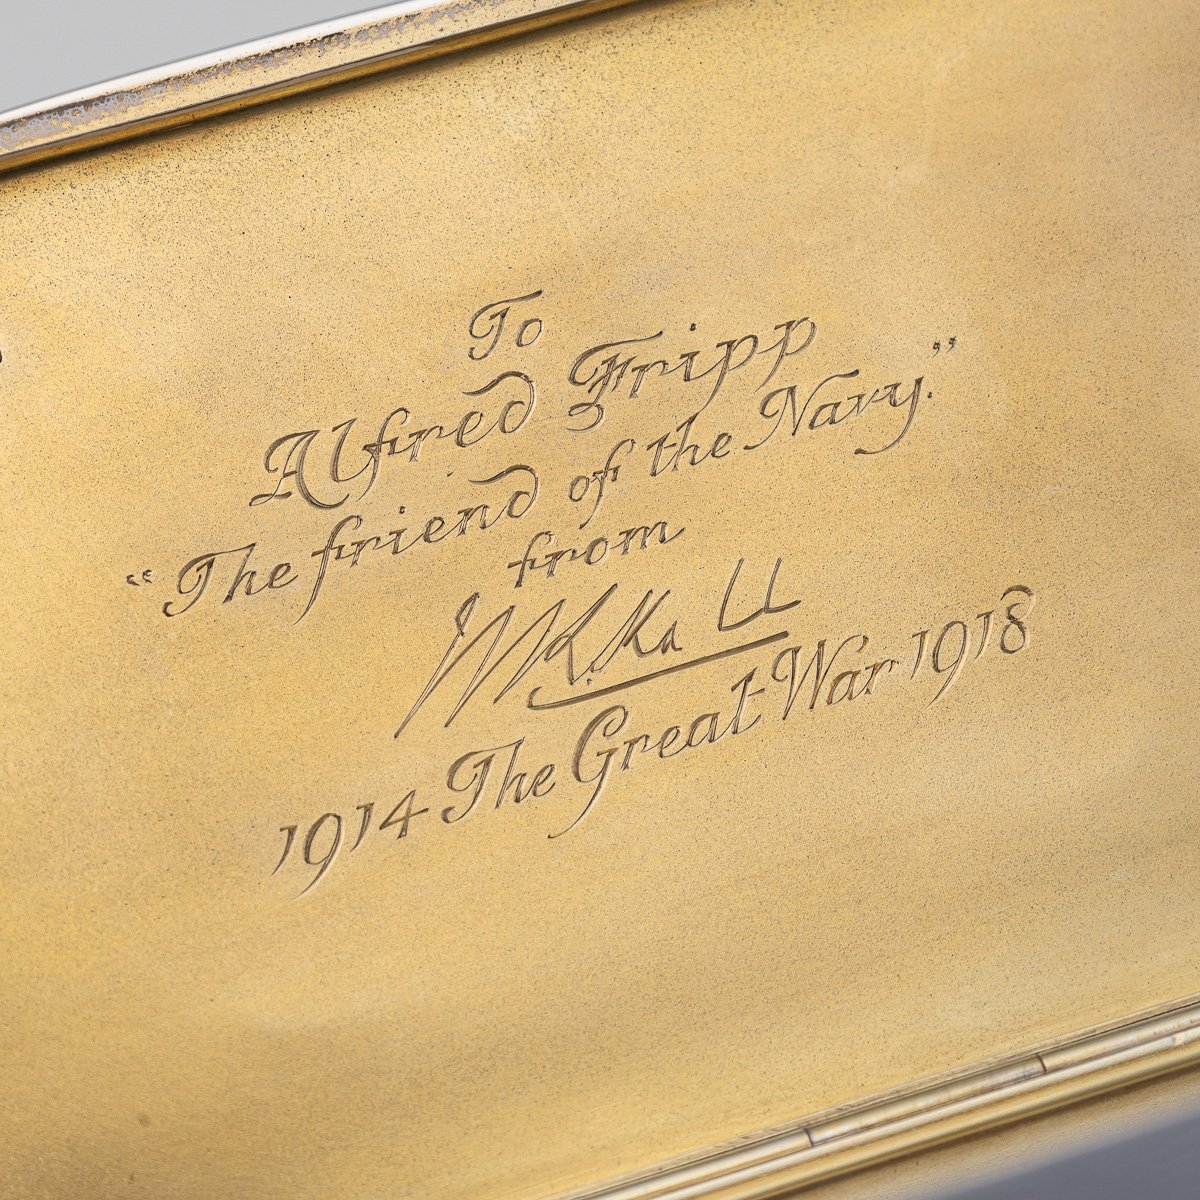 To
Alfred Fripp
“The friend of the Navy.”
from
1914 The Great War 1918